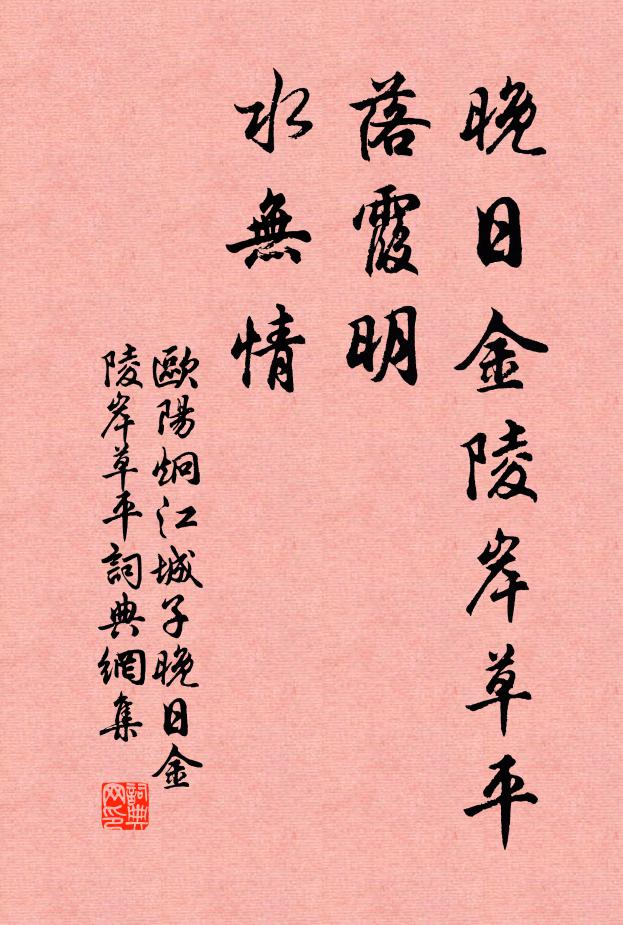 晚日金陵岸草平
落霞明
水無情
歐陽炯江城子晚日金
陵岸草平詞典網集
詞典
网印